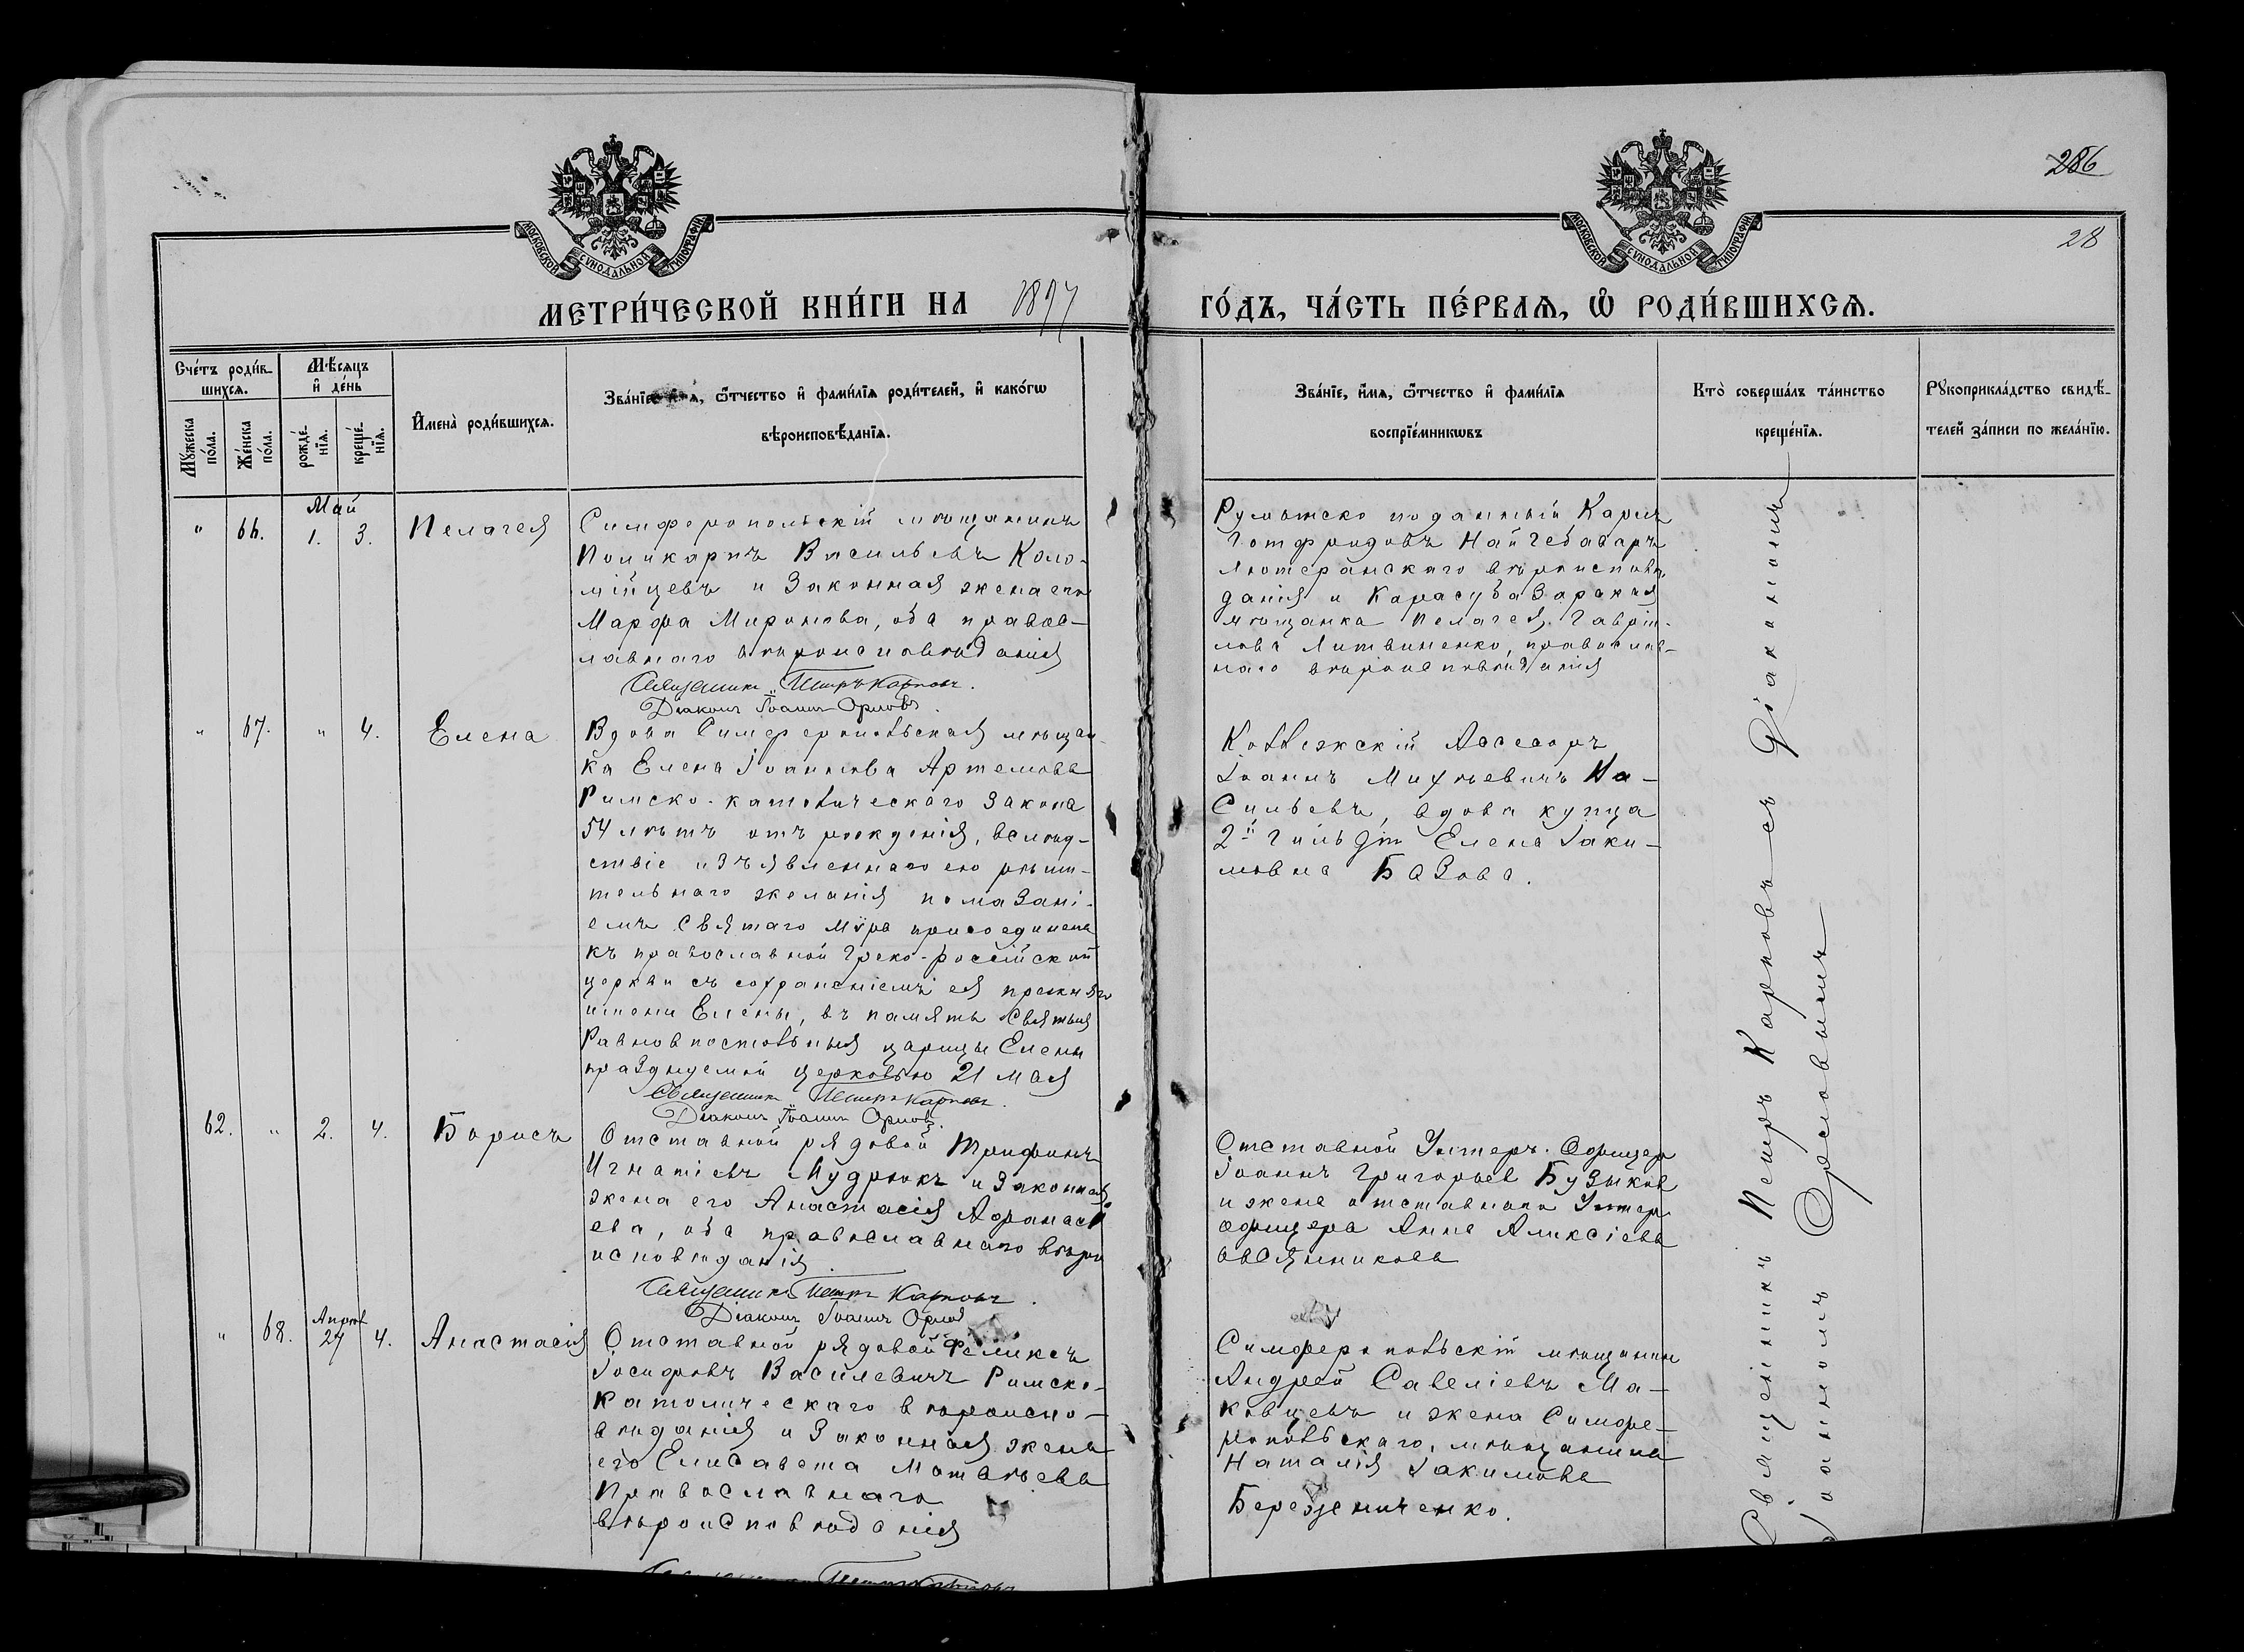 286
28
МОСКОВСКОЙ СУНОДАЛЬНОЙ ТИПОГРАФІИ
МОСКОВСКОЙ СУНОДАЛЬНОЙ ТИПОГРАФІИ
МЕТРИ́ЧЕСКОЙ КНИ́ГИ НА 1897
ГО́ДЪ, ЧА́СТЬ ПЕ́РВАѦ, Ѽ РОДИ́ВШИХСѦ.
Сче́тъ роди́в-
шихсѧ.
Мѣ́сѧцъ
и҆ де́нь
Мꙋ́жеска
по́ла.
Же́нска
по́ла.
рожде́-
нїѧ.
креще́-
нїѧ.
И҆мена̀ роди́вшихсѧ.
Зва́нїе, и҆́мѧ, ѻ҆́тчество и҆ фами́лїѧ роди́телей, и҆ како́гѡ
вѣроисповѣ́данїѧ.
Зва́нїе, и҆́мѧ, ѻ҆́тчество и҆ фами́лїѧ
воспрїе́мникѡвъ
Кто̀ соверша́лъ та́инство
креще́нїѧ.
Рꙋкоприкла́дство свидѣ́-
телей за́писи по жела́нїю.
Май
" 66. 1. 3. Пелагея
Симферопольскій мѣщанинъ
Поликарпъ Васильевъ Коло-
мійцевъ и законная жена его
Марфа Миронова, оба правос-
лавнаго вѣроисповѣданія
Священникъ Петръ Карповъ.
Діаконъ Іоаннъ Орловъ.
подданный Карлъ
Готфридовъ Найгебаваръ
лютеранскаго вѣроисповѣ-
данія и Карасубазарская
мѣщанка Пелагея Гаврі-
лова Литвиненко, православ-
наго вѣроисповѣданія
" 67. " 4. Елена
Вдова Симферопольская мѣщан-
ка Елена Іоаннова Артемова
Римско-католическаго закона
54 лѣтъ отъ рожденія, вслѣд-
ствіе изъявленнаго ею рѣши-
тельнаго желанія помазані-
емъ святаго мѵра присоединена
къ православной Греко-Россійской
церкви съ сохраненіемъ ея прежняго
имени Елены, въ память Святыя
Равноапостольныя царицы Елены
празднуемой церковью 21 мая
Священникъ Петръ Карповъ.
Діаконъ Іоаннъ Орловъ.
Коллежскій Ассесоръ
Іоаннъ Ва-
сильевъ, вдова купца
2й гильдіи Елена Іаки-
мовна Базова.
62. " 2. 4. Борисъ
Отставной рядовой Трифонъ
Игнатіевъ Мудрюкъ и законная
жена его Анастасія Афанась
ева, оба православнаго вѣро
исповѣданія.
Священникъ Петръ Карповъ.
Діаконъ Іоаннъ Орловъ
Отставной Унтеръ-Офицер
Іоаннъ Григорьев Бузыков
и жена отставного Унтер
офицера Анна Аликсіева
Овсянникова
" 68. Апрѣл 27 4. Анастасія
Отставной рядовой Феликсъ
Іосифовъ Василевичъ Римско-
Католическаго вѣроиспо-
вѣданія и законная жена
его Елисавета Матвѣева
Православнаго
вѣроисповѣданія
Симферопольскій мѣщанин
Андрей Савеліевъ Ма-
ковцевъ и жена Симфе-
ропольскаго мѣщанина
Наталія Іакимова
Священникъ Петръ Карповъ съ Діакономъ
Іоанномъ Орловымъ